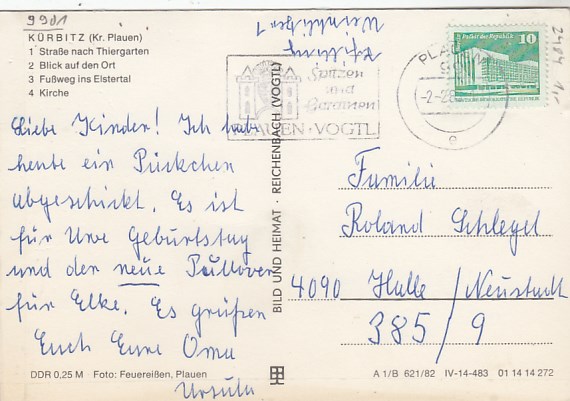 9901
KÜRBITZ (Kr. Plauen)
1 Straße nach Thiergarten
2 Blick auf den Ort
3 Fußweg ins Elstertal
4 Kirche
Liebe Kinder! Ich habe
heute ein Päckchen
abgeschickt. Es ist
für Uwe Geburtstag
und der neue Pullover
für Elke. Es grüßen
Euch Eure Oma
Ursula
DDR 0,25 M Foto: Feuereißen, Plauen
BILD UND HEIMAT · REICHENBACH (VOGTL)
Spitzen
und
Gardinen
PLAUEN · VOGTL
PLAUEN
10
2484
Familie
Roland Schlegel
4090 Halle / Neustadt
385/9
A 1/B 621/82 IV-14-483 01 14 14 272